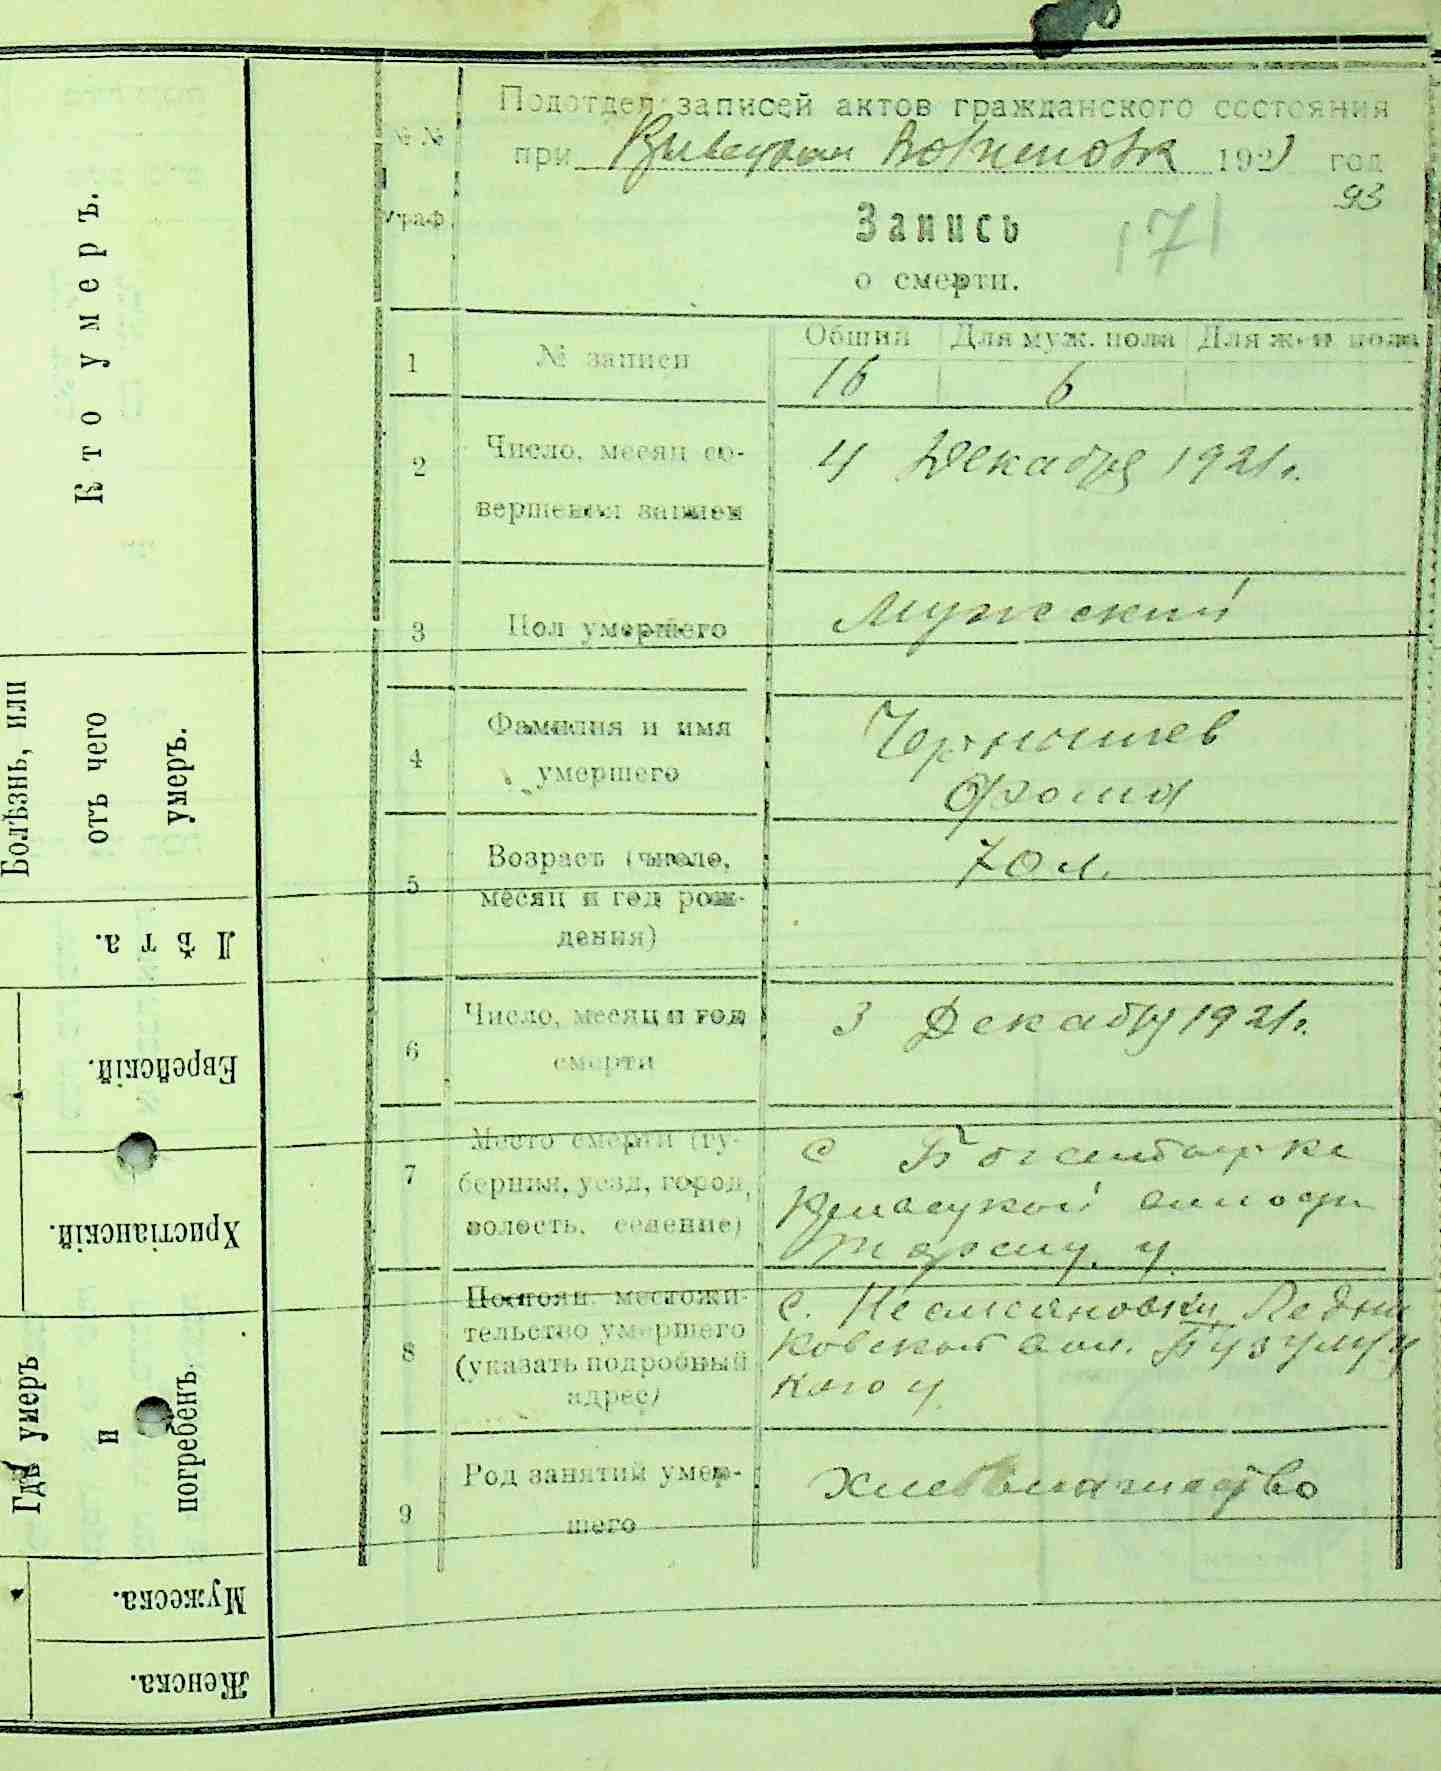 Подотдел записей актов гражданского состояния
при 1921 год
93
Запись
171
о смерти.
№№ граф.
1 № записи Общий 16 Для муж. пола 6 Для жен пола
2 Число, месяц со-
вершения записи
4 Декабря 1921 г.
3 Пол умершего Мужеский
4 Фамилия и имя
умершего
Чернышев
Фома
5 Возраст (число,
месяц и год рож-
дения)
70 л.
6 Число, месяц и год
смерти
3 Декабря 1921 г.
7 Место смерти (гу-
берния, уезд, город,
волость, селение)
с
у.
8 Постоян. местожи-
тельство умершего
(указать подробный
адрес)
с.
ковской вол. Бузулуц
кого у
9 Род занятий умер-
шего
Хлебопашество
Кто умеръ.
Болѣзнь, или
отъ чего
умеръ.
Лѣта.
Еврейскій.
Христіанскій.
Гдѣ умеръ
и
погребенъ.
Мужеска.
Женска.